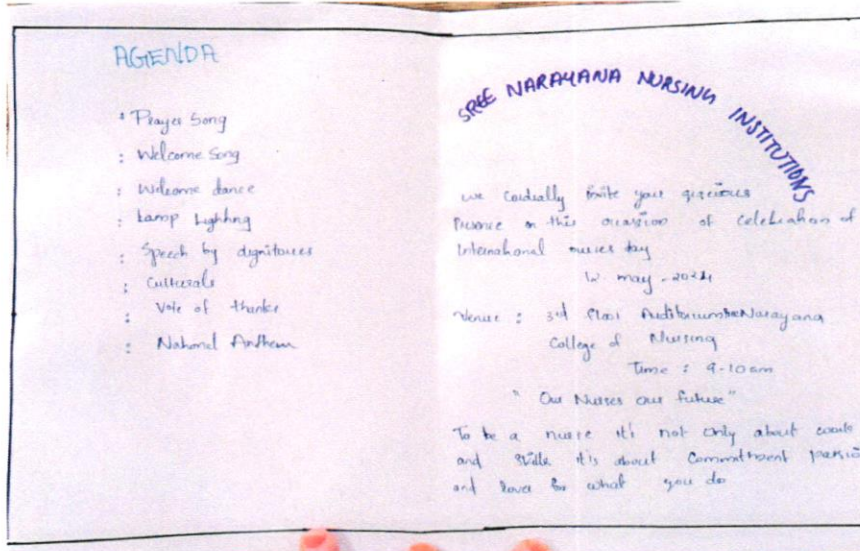 AGENDA
* Prayer Song
: Welcome Song
: Welcome dance
: Lamp Lighting
: Speech by dignitaries
: Culturals
: Vote of thanks
: National Anthem
SREE NARAYANA NURSING INSTITUTIONS
we Cordially invite your gracious
Presence on this occassion of Celebration of
International nurses day
12 may - 2024
Venue : 3rd floor Auditorium Sree Narayana
College of Nursing
Time : 9-10am
" Our Nurses our future"
To be a nurse it's not only about
and Skills it's about Commitment passio
and love for what you do